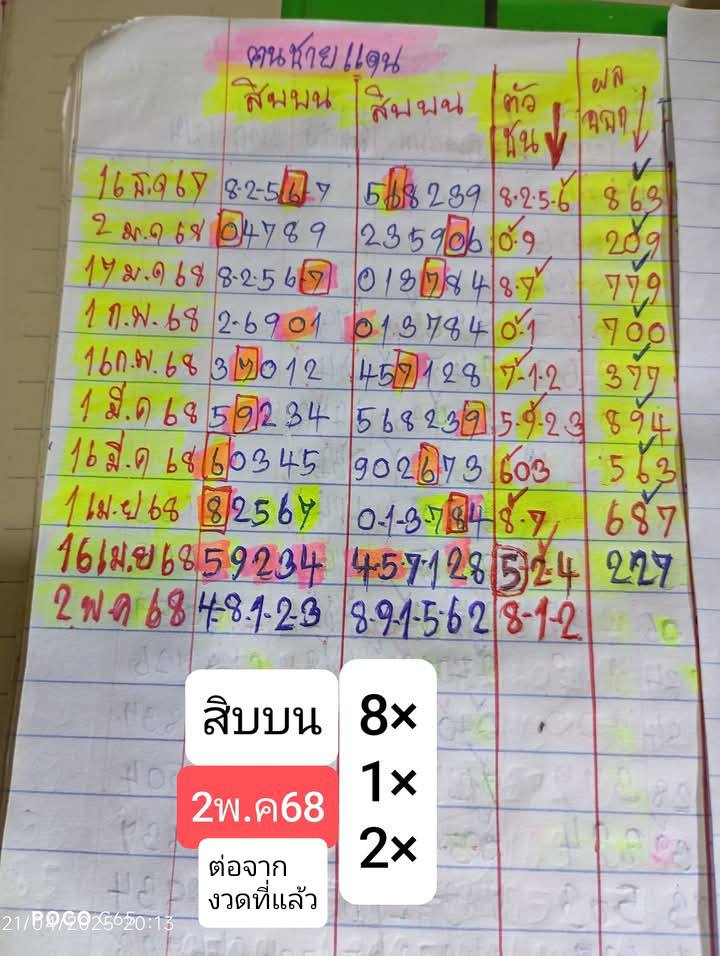 ฅนชายแดน
สิบบน สิบบน ตัวชน ผลออก
16 ธ.ค 67 8-2-5 6 7 568239 8-2-5-6 863
2 ม.ค 68 04789 235906 0-9 209
17 ม.ค 68 8-256-7 013784 8-7 779
1 ก.พ. 68 2-6901 013784 0-1 700
16 ก.พ. 68 37012 457128 7-1-2 377
1 มี.ค 68 59234 568239 5-9-23 894
16 มี.ค 68 60345 902673 603 563
1 เม.ย 68 82567 0-1-3-784 8-7 687
16 เม.ย 68 59234 4-5-7128 5-2-4 227
2 พ.ค 68 4-8-1-2-3 8-9-1-5-62 8-1-2
สิบบน
2พ.ค68
ต่อจาก
งวดที่แล้ว
8×
1×
2×
21/04/2025 20:13